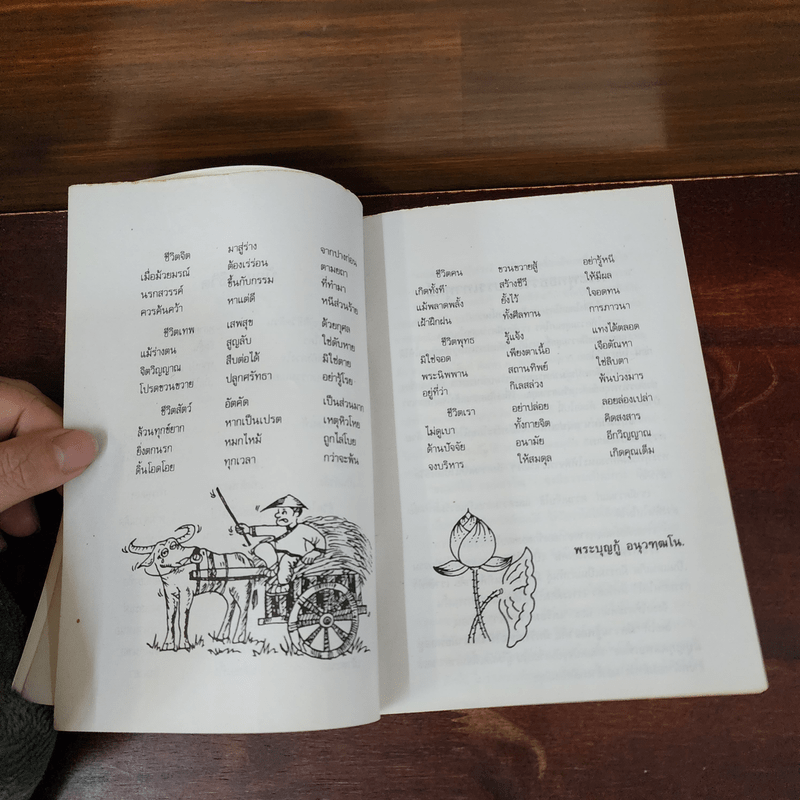 ชีวิตจิต มาสู่ร่าง จากปางก่อน
เมื่อม้วยมรณ์ ต้องเร่ร่อน ตามยถา
นรกสวรรค์ ขึ้นกับกรรม ที่ทำมา
ควรค้นคว้า หาแต่ดี หนีส่วนร้าย
ชีวิตเทพ เสพสุข ด้วยกุศล
แม้ร่างตน สูญลับ ใช่ดับหาย
จิตวิญญาณ สืบต่อได้ มิใช่ตาย
โปรดขวนขวาย ปลูกศรัทธา อย่ารู้โรย
ชีวิตสัตว์ อัตคัด เป็นส่วนมาก
ล้วนทุกข์ยาก หากเป็นเปรต เหตุหิวโหย
ยิ่งตกนรก หมกไหม้ ถูกไล่โบย
ดิ้นโอดโอย ทุกเวลา กว่าจะพ้น
ชีวิตคน ขวนขวายสู้ อย่ารู้หนี
เกิดทั้งที สร้างชีวี ให้มีผล
แม้พลาดพลั้ง ยั้งไว้ ใจอดทน
เฝ้าฝึกฝน ทั้งศีลทาน การภาวนา
ชีวิตพุทธ รู้แจ้ง แทงได้ตลอด
มิใช่จอด เพียงตาเนื้อ เจือตัณหา
พระนิพพาน สถานทิพย์ ใช่ลิบตา
อยู่ที่ว่า กิเลสล่วง พ้นบ่วงมาร
ชีวิตเรา อย่าปล่อย ลอยล่องเปล่า
ไม่ดูเบา ทั้งกายจิต คิดสงสาร
ด้านปัจจัย อนามัย อีกวิญญาณ
จงบริหาร ให้สมดุล เกิดคุณเต็ม
พระบุญกู้ อนุวฑฺฒโน.